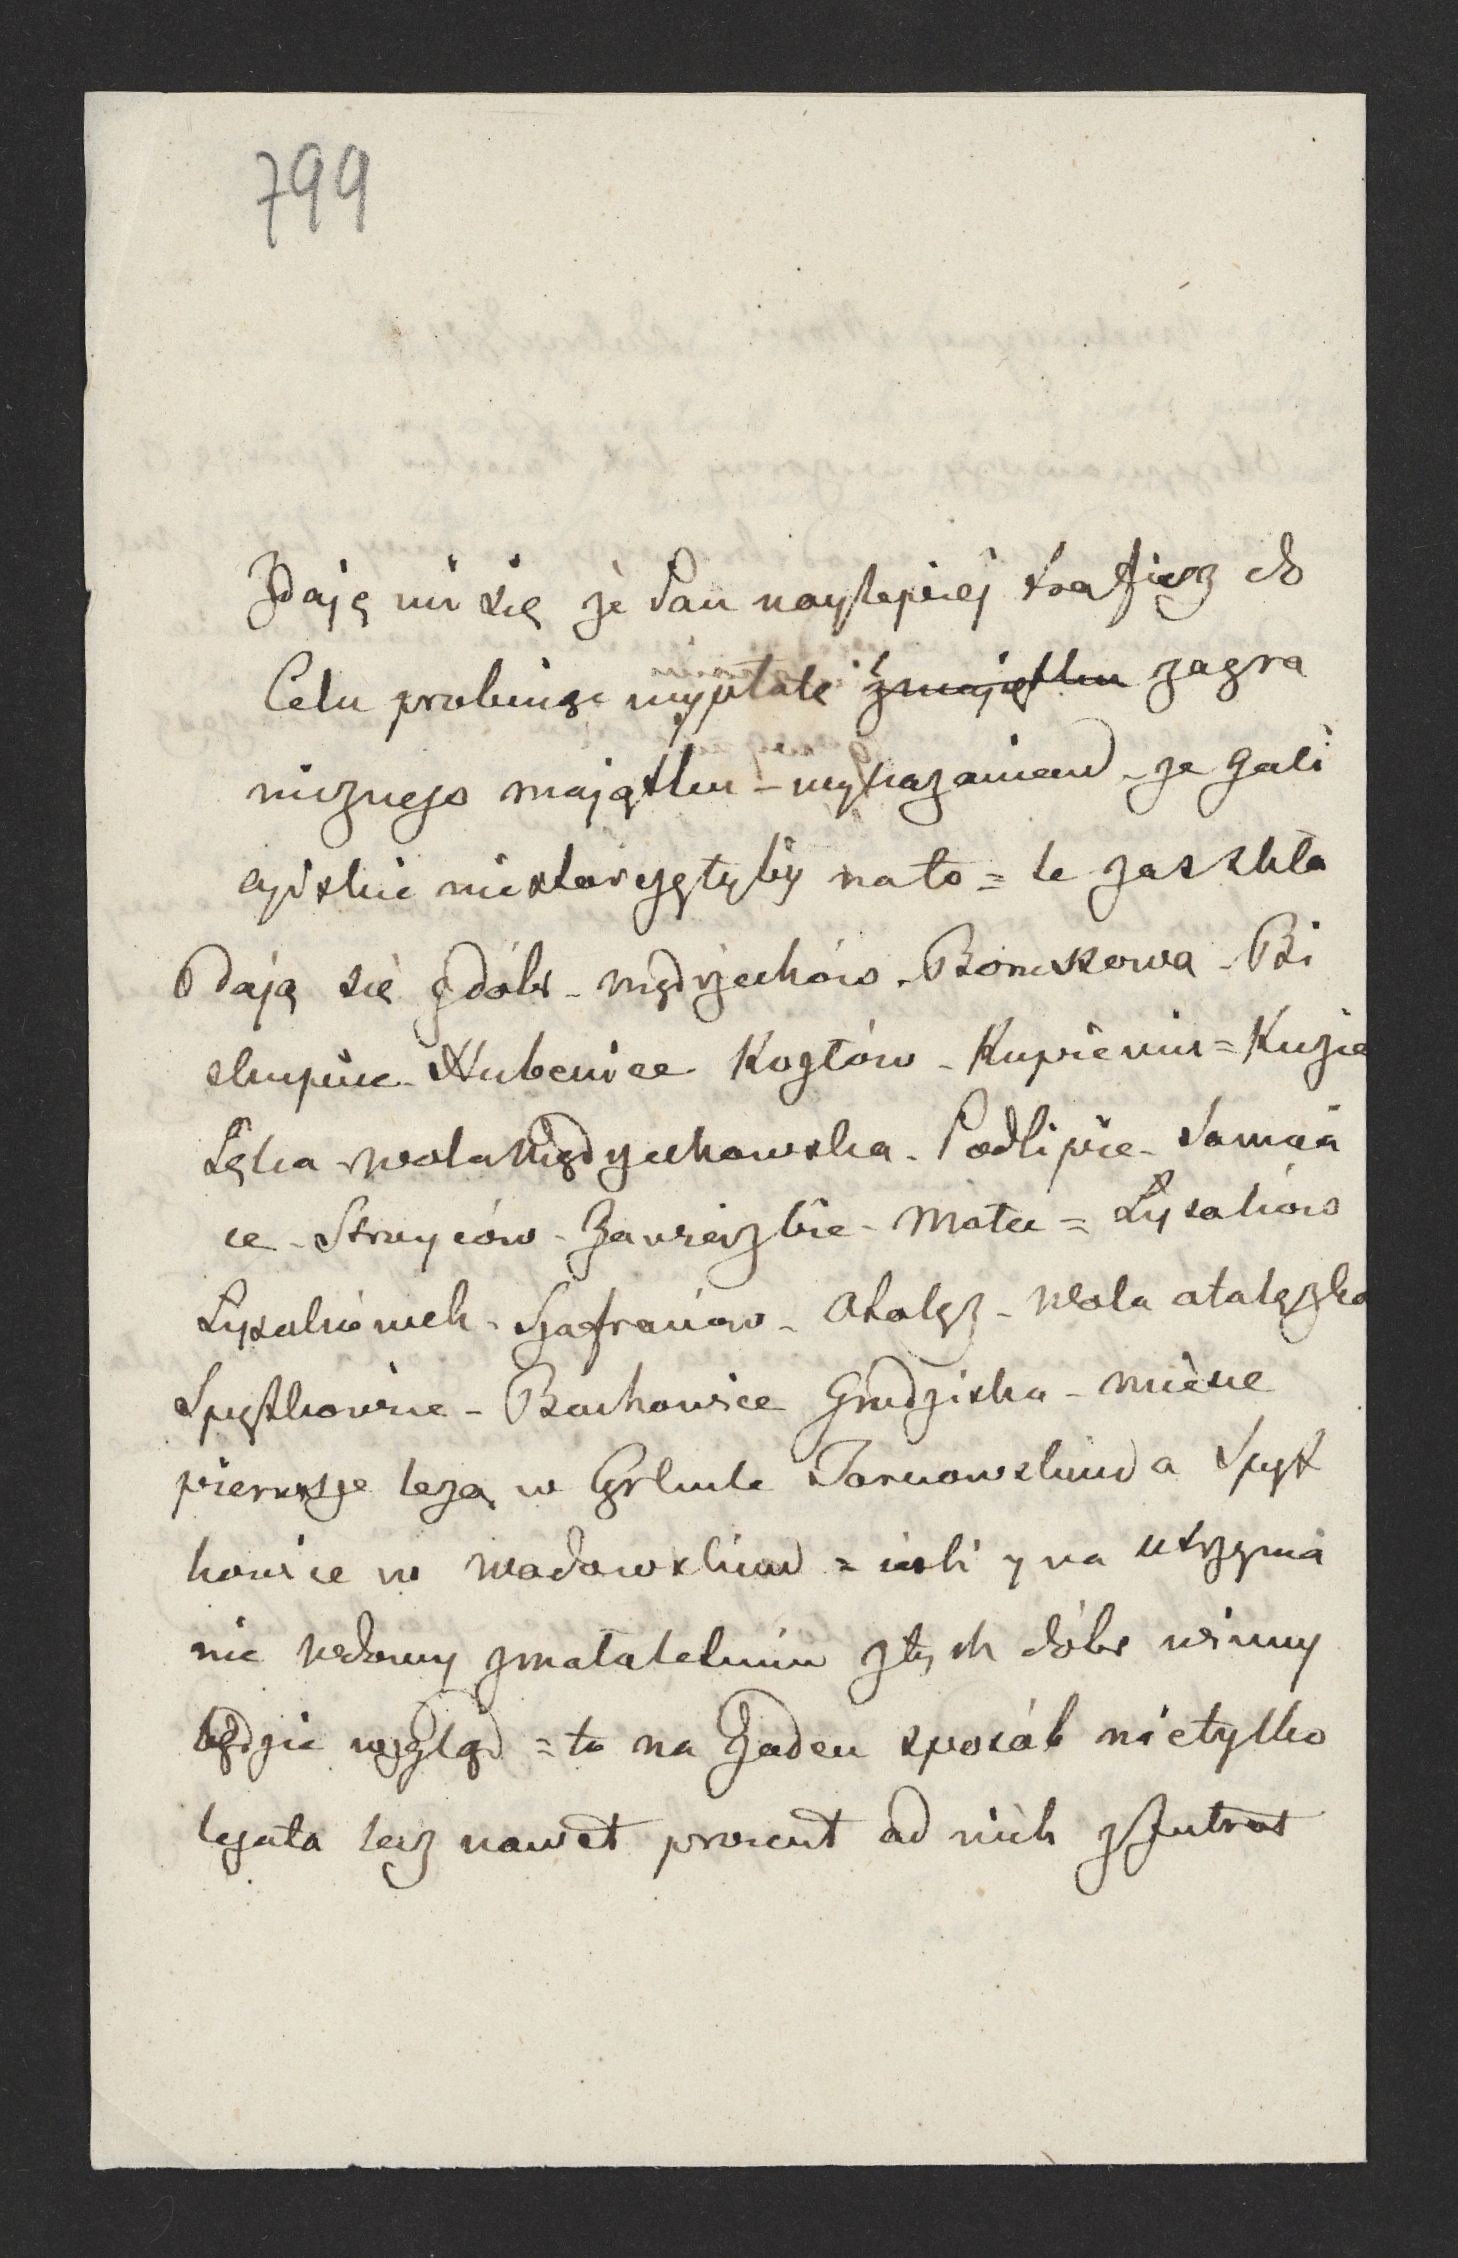 799
Zdaję mi się że Pan naylepiej trafisz do
Celu probując wypłate z majątku zagra
nicznego majątku - wykazaniem - że gali
cyiskie niestarczyłyby na to = te zas skła
dają się z dóbr - Mędrzechów - Boruszowa - Bi
skupice - Hubenice Kozłów - Kupienin = Kuzie
Łęka - wola Mędrzychowska - Podlipie - Samoci
ce - Strojców - Zawierzbie - Małec = Łysaków
Łysakówek - Szafranów - Otałęż - Wola otałęzka
Spytkowice - Bachowice Grodziska - Miejsce
pierwsze leżą w Cyrkule Tarnowskim a Spyt
kowice w Wadowskim = ieśli y na utrzyma
nie wdowy z małoletnim z tych dóbr winny
będzie wzgląd = to na żaden sposób nietylko
legata lecz nawet procent od nich z Intrat